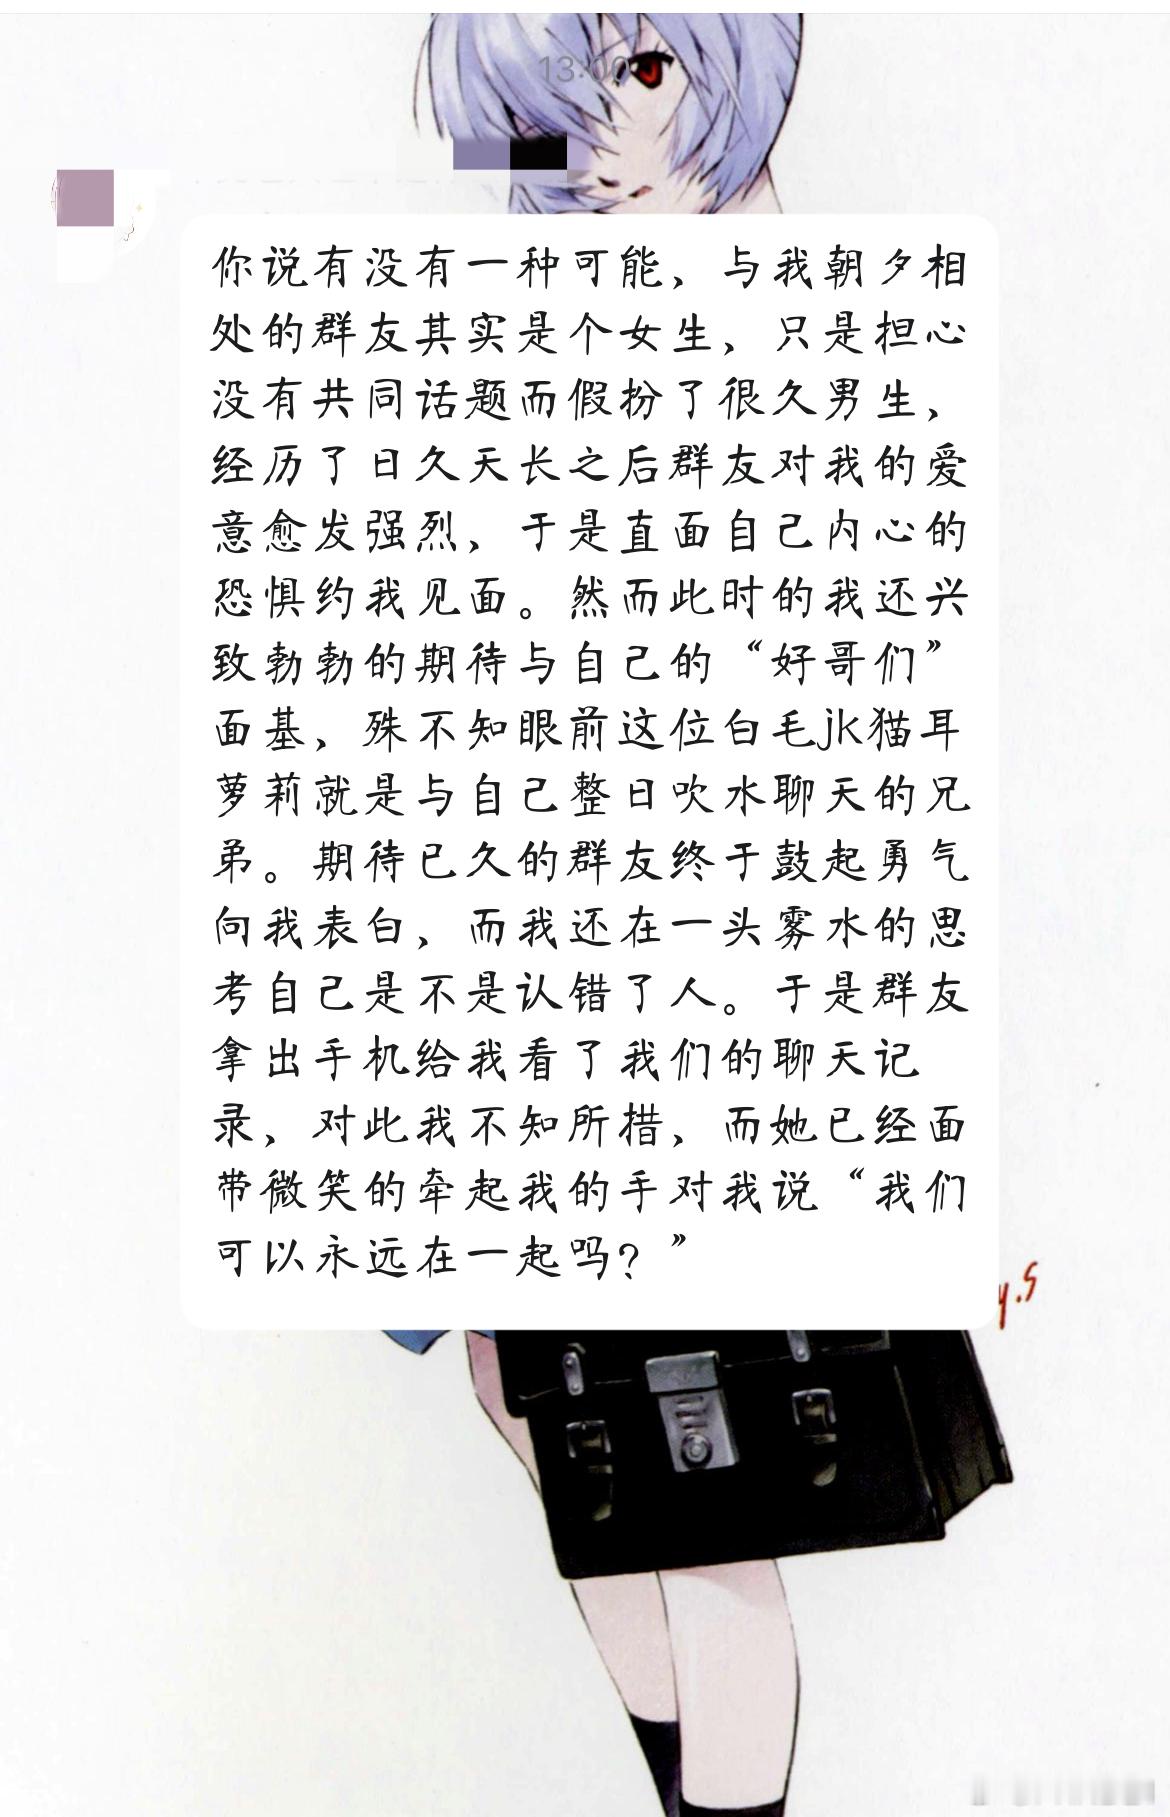 13:00
你说有没有一种可能，与我朝夕相
处的群友其实是个女生，只是担心
没有共同话题而假扮了很久男生，
经历了日久天长之后群友对我的爱
意愈发强烈，于是直面自己内心的
恐惧约我见面。然而此时的我还兴
致勃勃的期待与自己的“好哥们”
面基，殊不知眼前这位白毛jk猫耳
萝莉就是与自己整日吹水聊天的兄
弟。期待已久的群友终于鼓起勇气
向我表白，而我还在一头雾水的思
考自己是不是认错了人。于是群友
拿出手机给我看了我们的聊天记
录，对此我不知所措，而她已经面
带微笑的牵起我的手对我说“我们
可以永远在一起吗？”
y.s